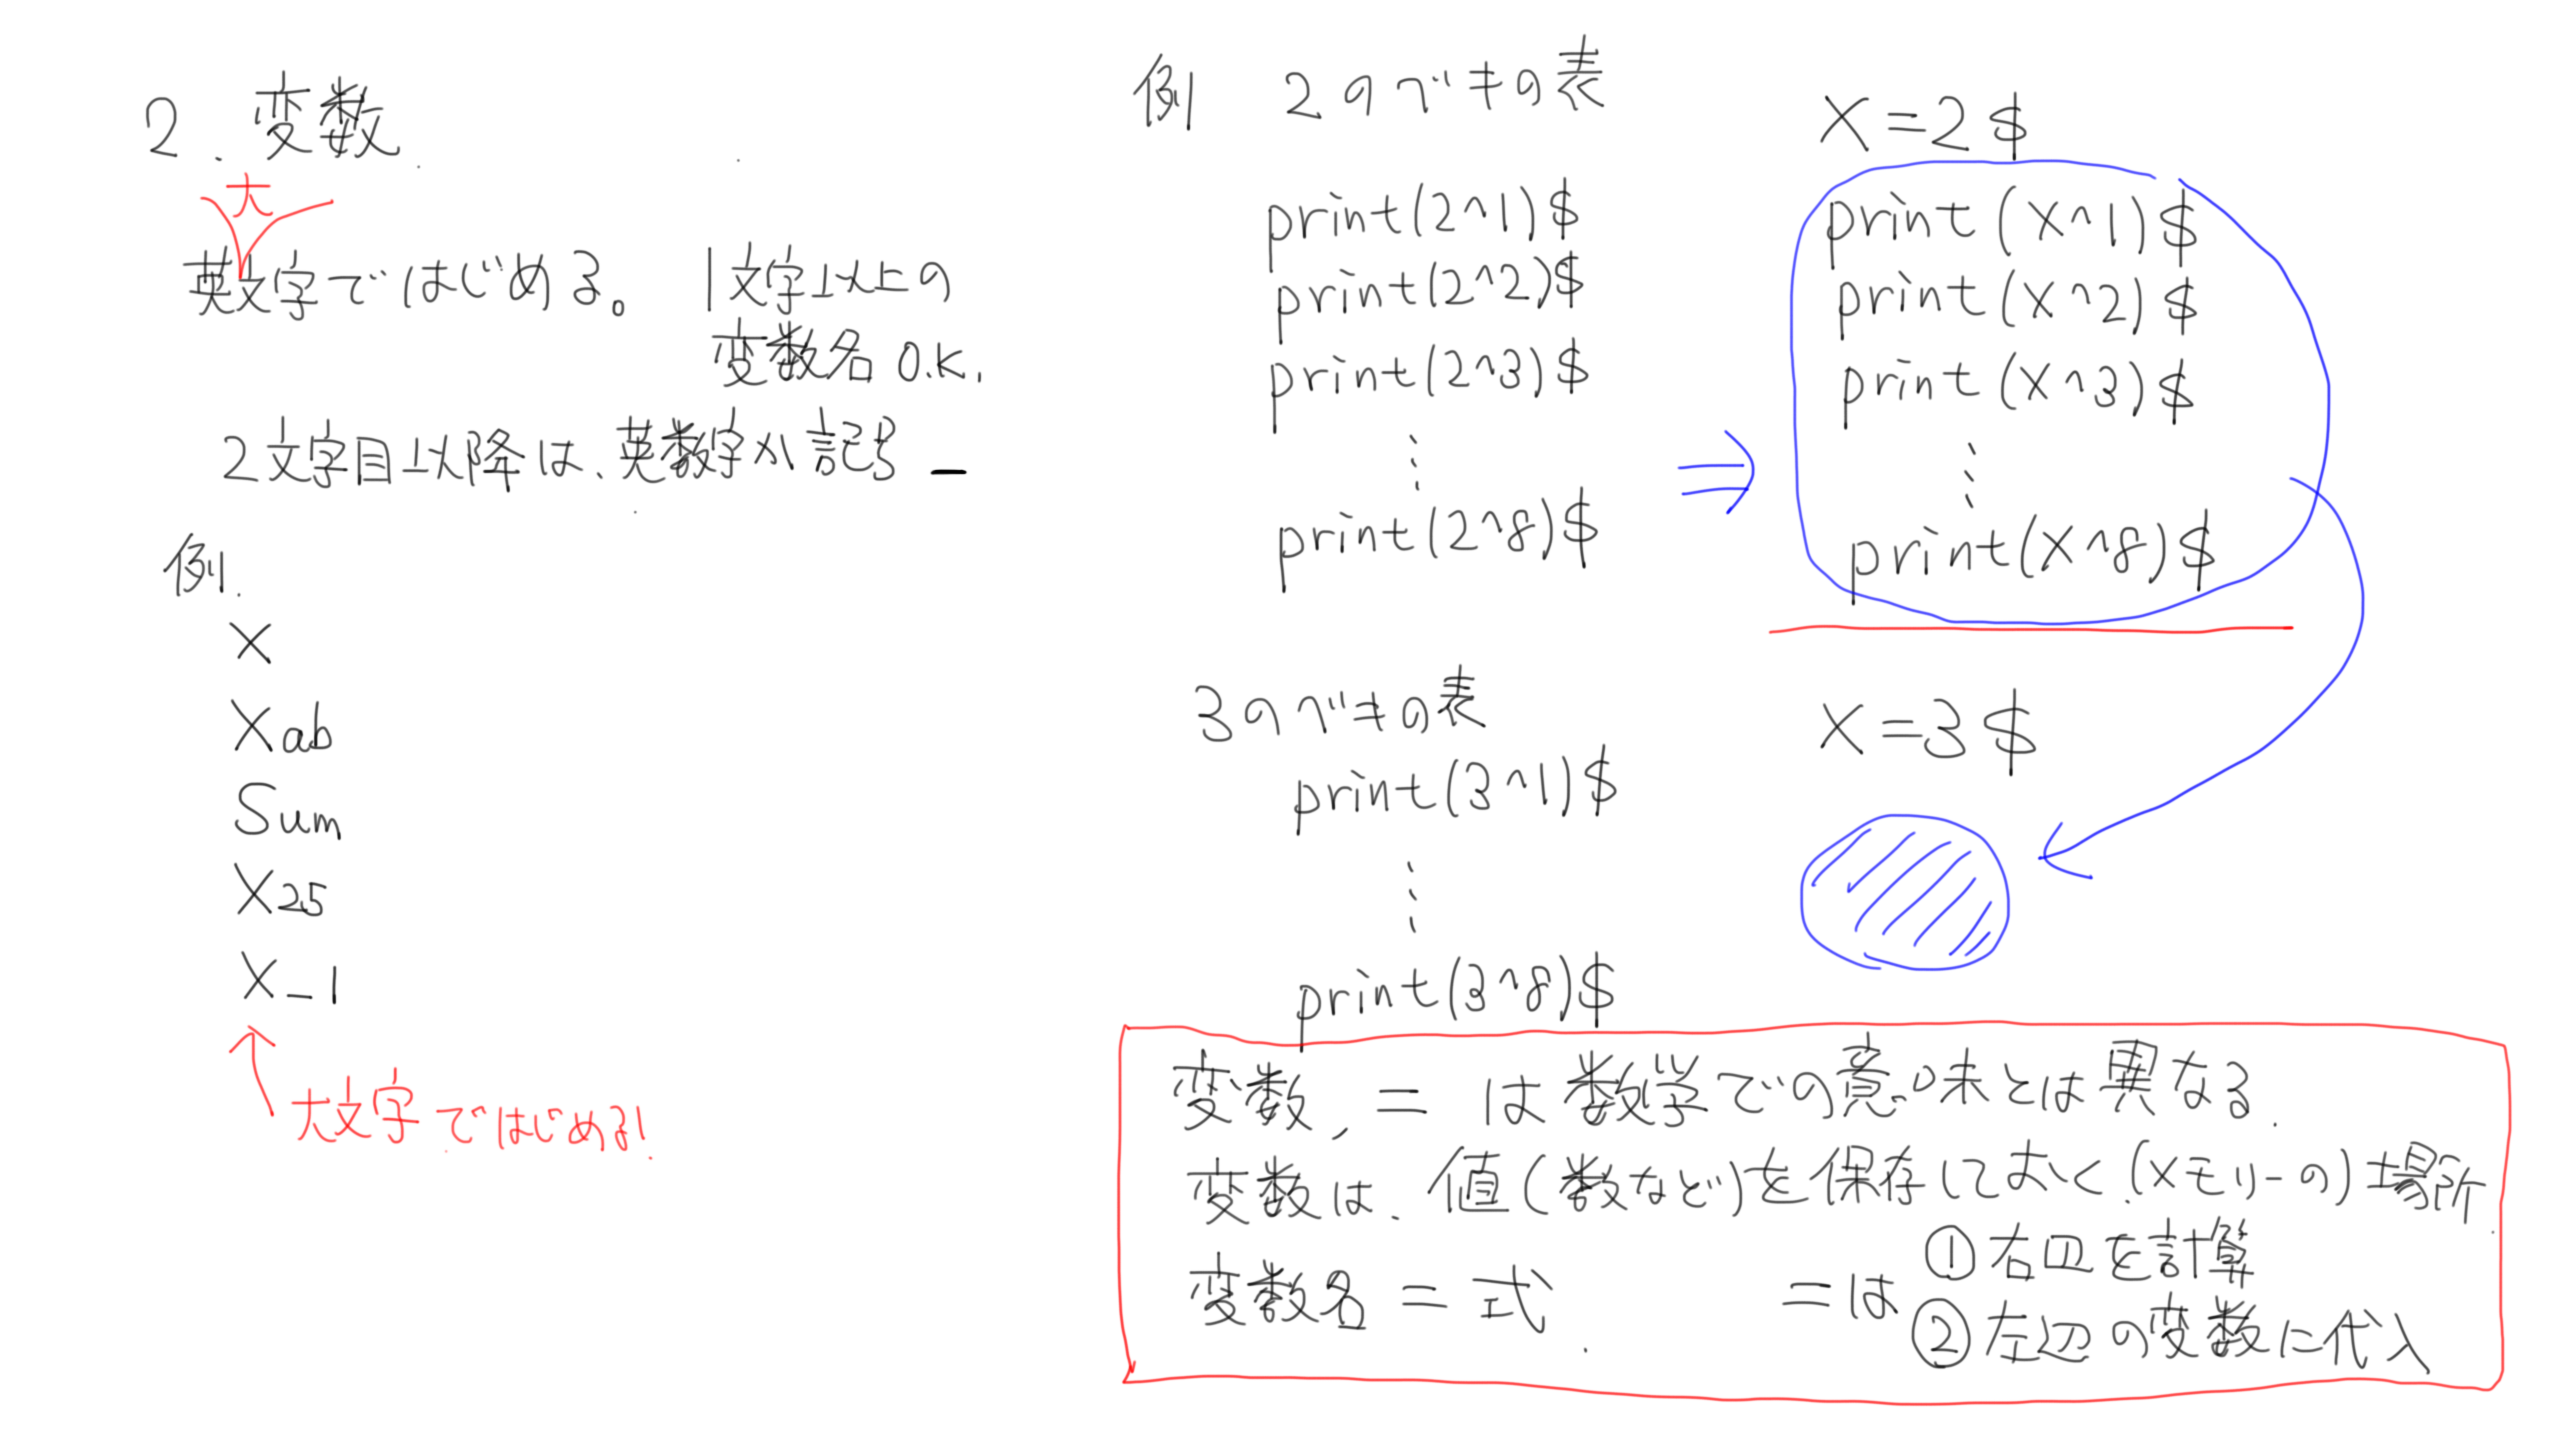 2. 変数
大
英文字ではじめる。 1文字以上の
変数名 O.K.
2文字目以降は、英数字か記号 _
例.
X
Xab
Sum
X25
X_1
大文字ではじめる!
例 2のべキの表
print(2^1)$
print(2^2)$
print(2^3)$
⋮
print(2^8)$
⇒
X=2$
print(X^1)$
print(X^2)$
print(X^3)$
⋮
print(X^8)$
3のべキの表
print(3^1)$
⋮
print(3^8)$
X=3$
変数, = は数学での意味とは異なる.
変数は、値(数など)を保存しておく.(メモリーの)場所.
変数名 = 式.
=は ①右辺を計算
②左辺の変数に代入